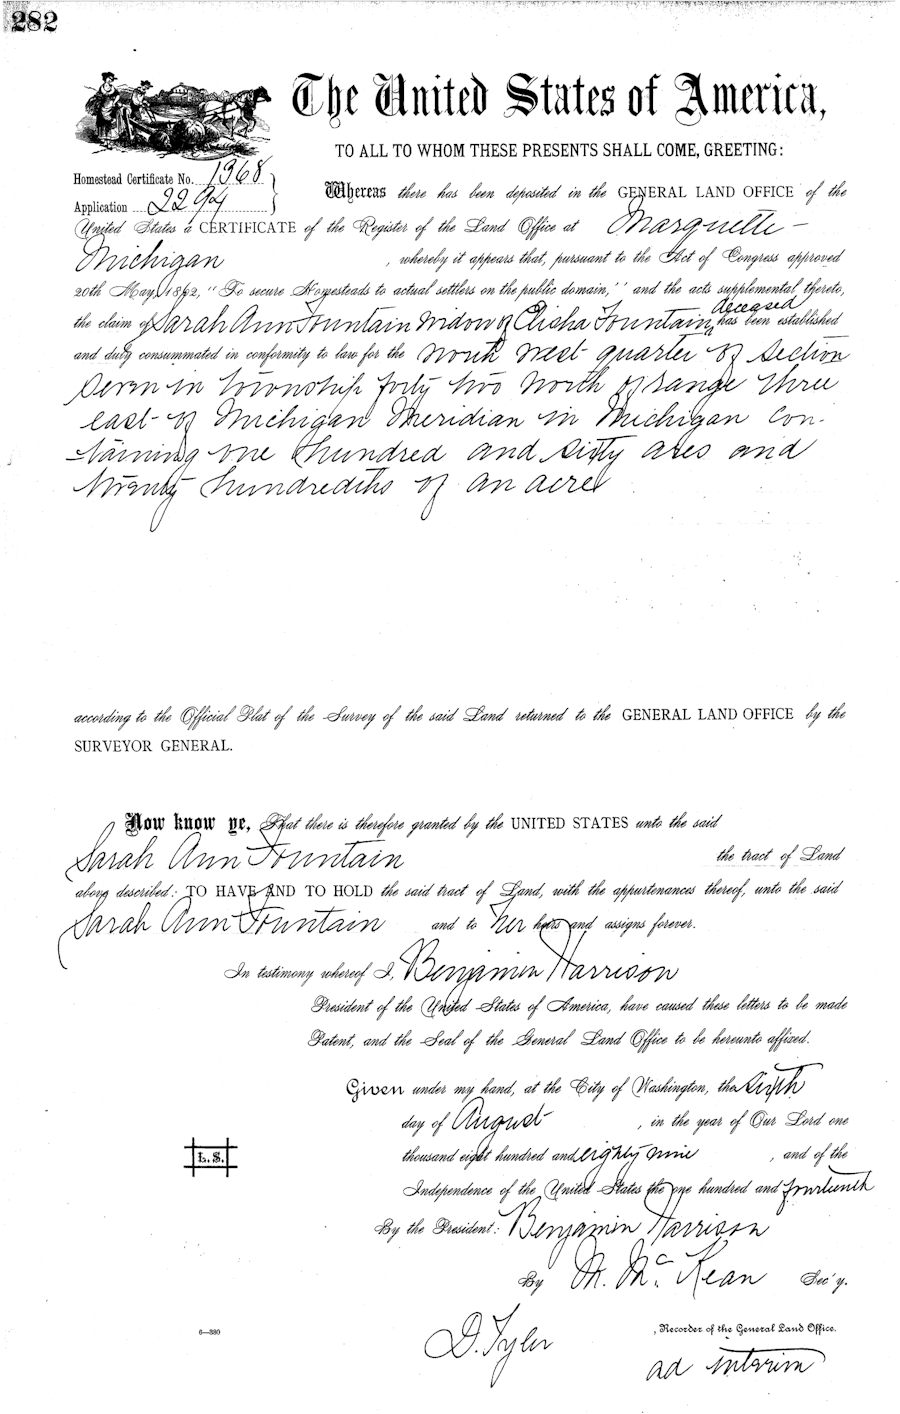 282
The United States of America,
TO ALL TO WHOM THESE PRESENTS SHALL COME, GREETING:
Homestead Certificate No. 1368
Application 2294
Whereas there has been deposited in the GENERAL LAND OFFICE of the
United States a CERTIFICATE of the Register of the Land Office at Marquette
Michigan, whereby it appears that, pursuant to the Act of Congress approved
20th May, 1862, "To secure Homesteads to actual settlers on the public domain," and the acts supplemental thereto,
the claim of Sarah Ann Fountain widow of Elisha Fountain, deceased has been established
and duly consummated in conformity to law for the north west quarter of section
seven in township forty two north of range three
east of Michigan Meridian in Michigan con-
taining one hundred and sixty acres and
twenty hundredths of an acre
according to the Official Plat of the Survey of the said Land returned to the GENERAL LAND OFFICE by the
SURVEYOR GENERAL.
Now know ye, That there is therefore granted by the UNITED STATES unto the said
Sarah Ann Fountain the tract of Land
above described: TO HAVE AND TO HOLD the said tract of Land, with the appurtenances thereof, unto the said
Sarah Ann Fountain and to her heirs and assigns forever.
In testimony whereof I, Benjamin Harrison
President of the United States of America, have caused these letters to be made
Patent, and the Seal of the General Land Office to be hereunto affixed.
Given under my hand, at the City of Washington, the sixth
day of August, in the year of Our Lord one
thousand eight hundred and eighty nine, and of the
Independence of the United States the one hundred and fourteenth
L.S.
By the President: Benjamin Harrison
By M. McKean Sec'y.
6—380
D. Tyler, Recorder of the General Land Office.
ad interim